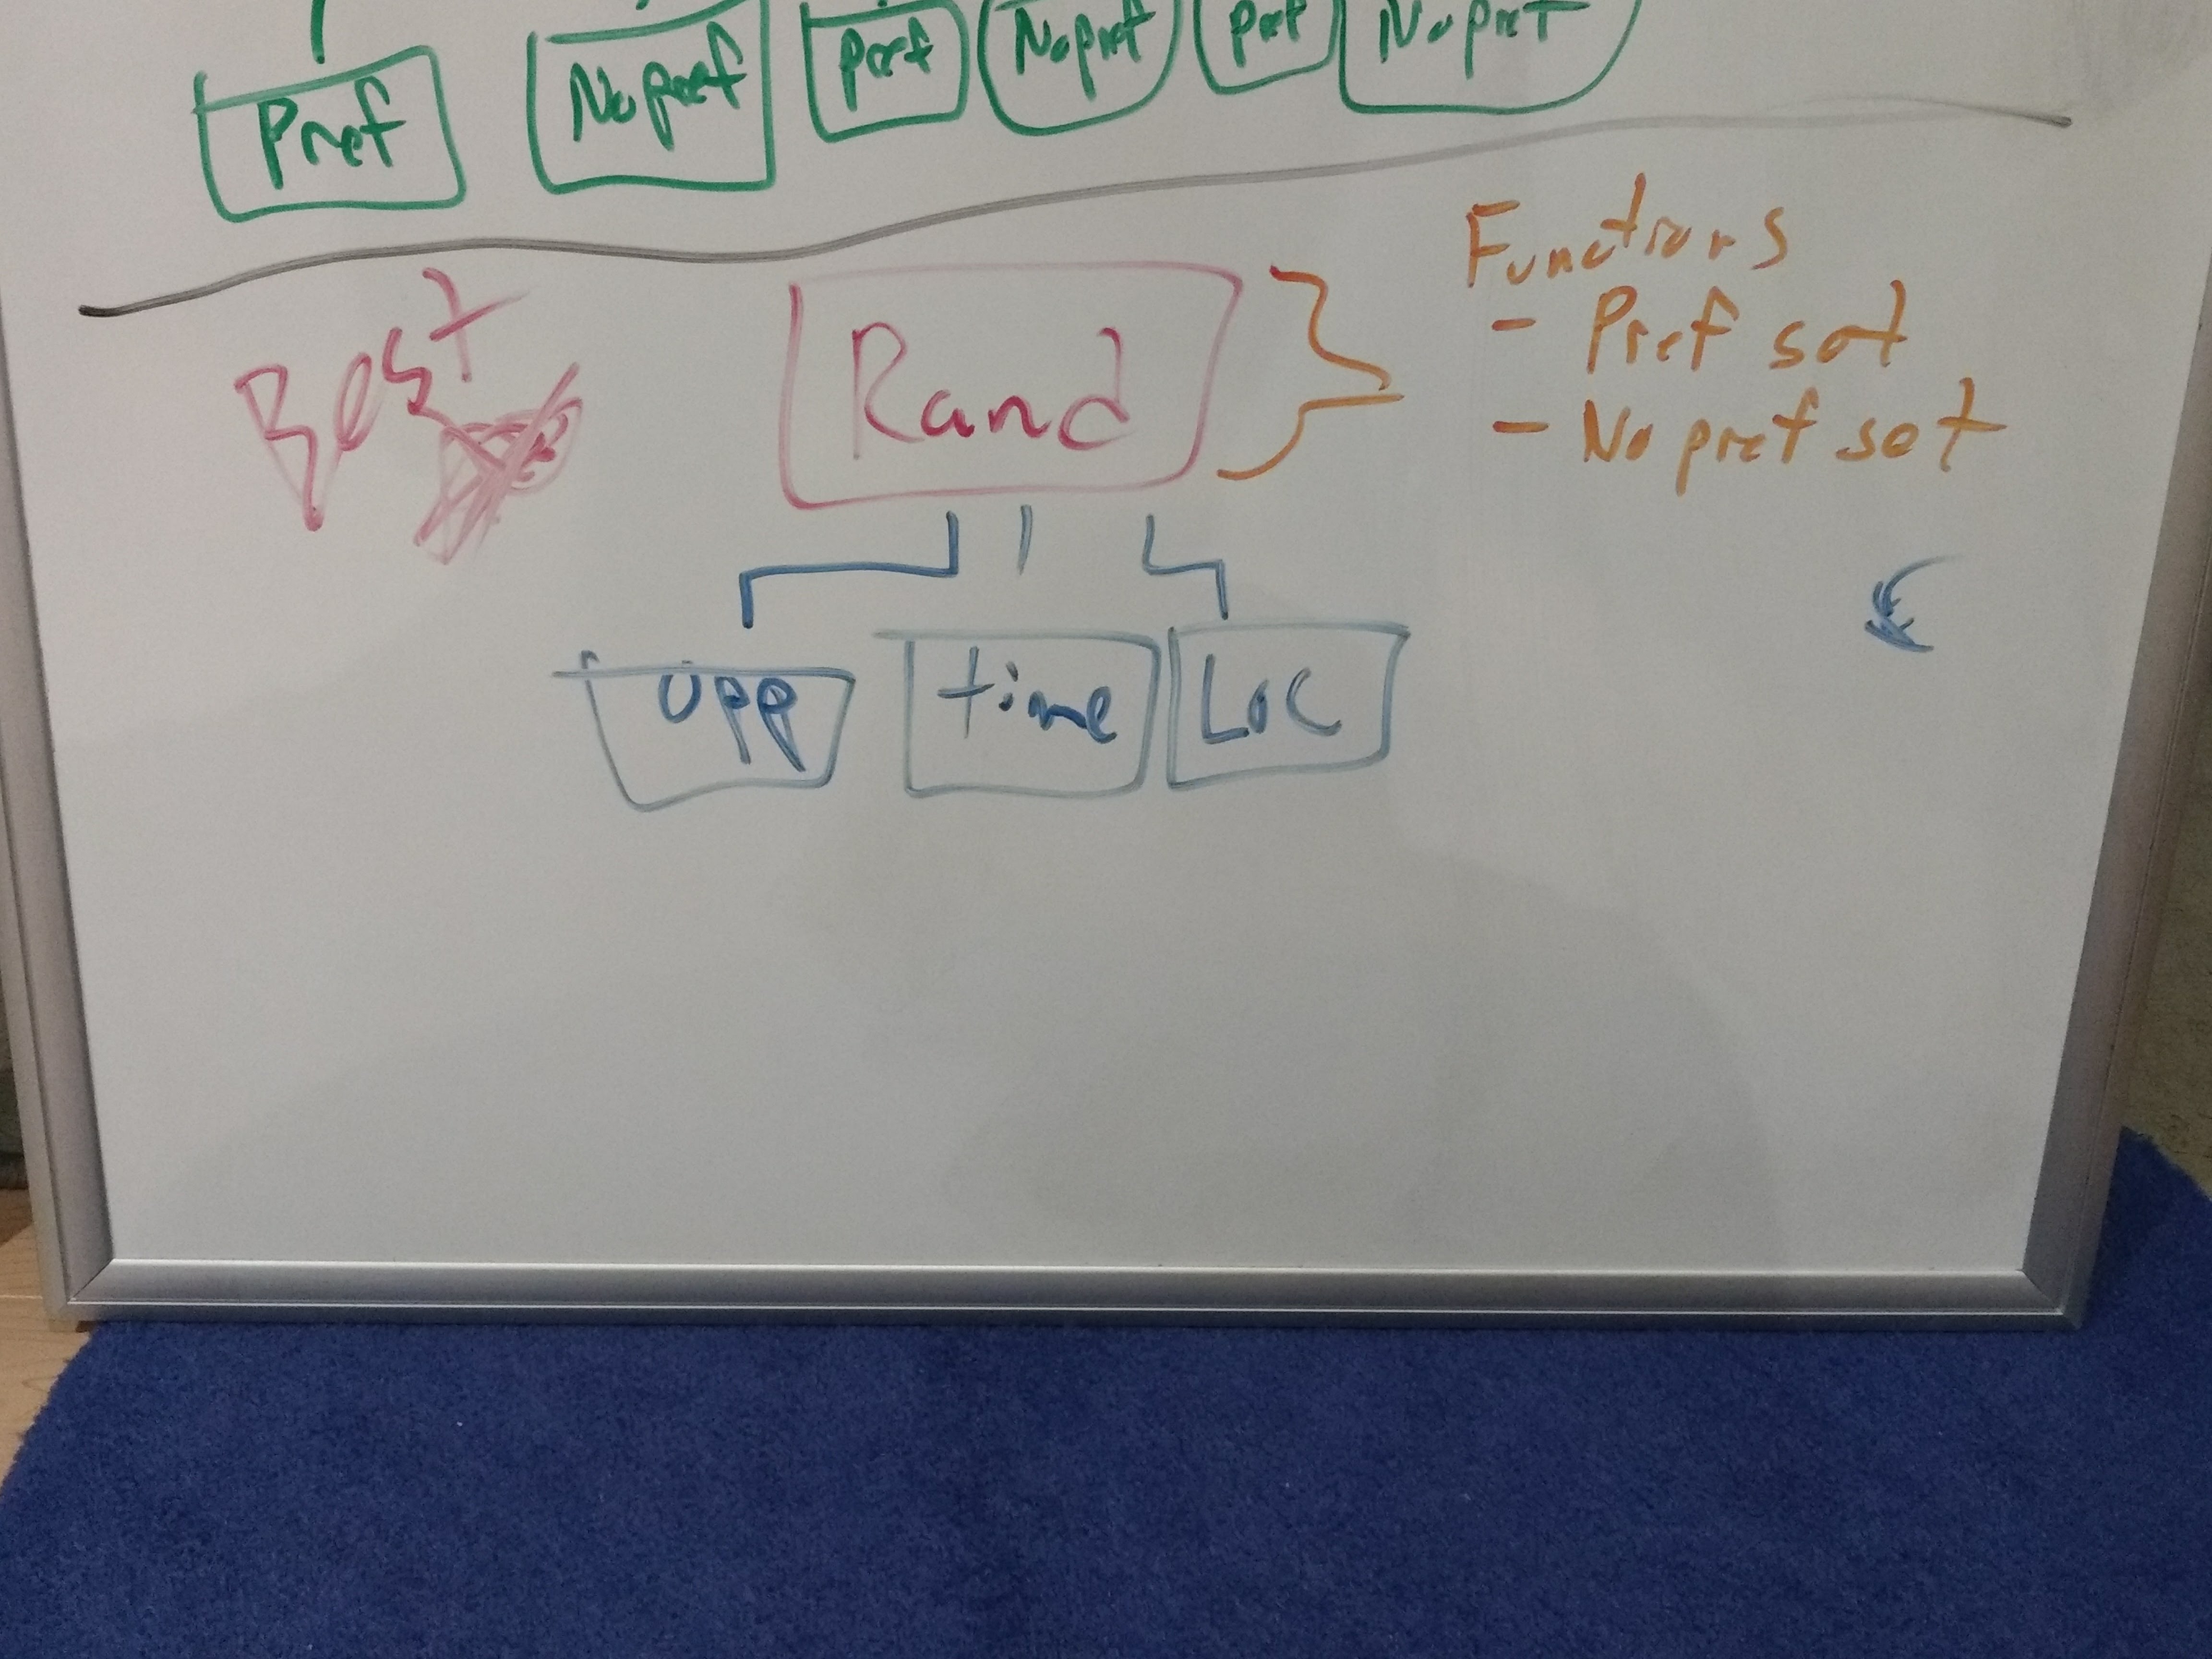 Pref No pref Pref No pref Pref No pref
Best
Rand
Functions
- Pref set
- No pref set
Opp time Loc